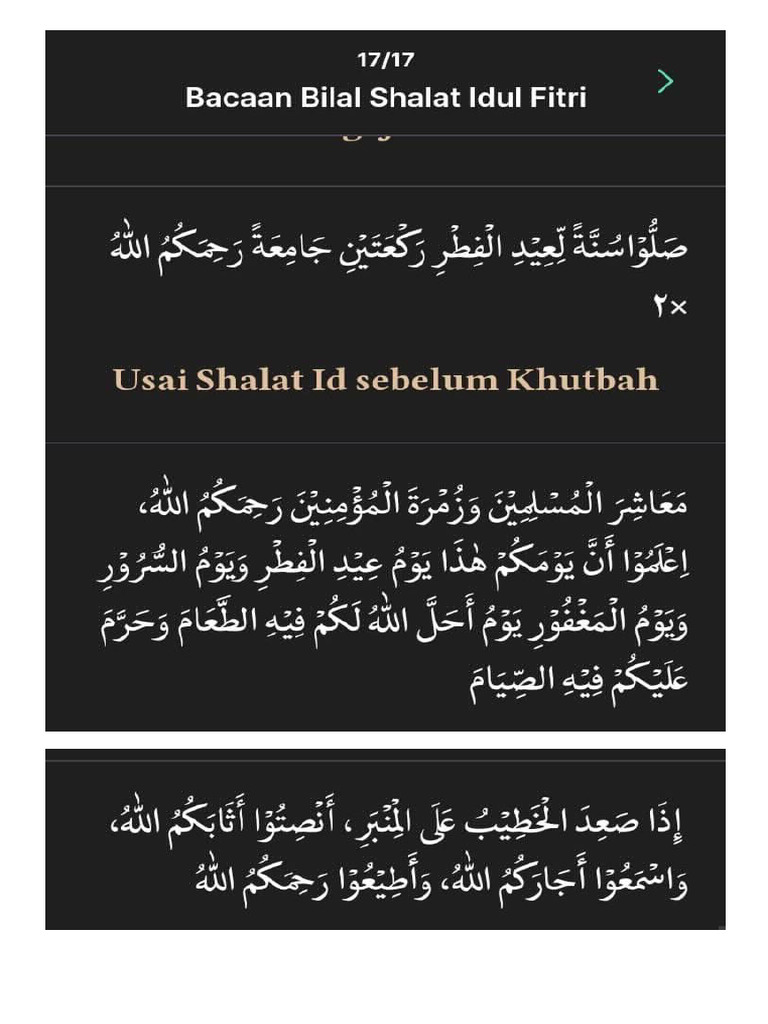 17/17
Bacaan Bilal Shalat Idul Fitri
صَلُّوْاسُنَّةً لِّعِيْدِ الْفِطْرِ رَكْعَتَيْنِ جَامِعَةً رَحِمَكُمُ اللهُ
×٢
Usai Shalat Id sebelum Khutbah
مَعَاشِرَ الْمُسْلِمِيْنَ وَزُمْرَةَ الْمُؤْمِنِيْنَ رَحِمَكُمُ اللهُ،
اِعْلَمُوْا أَنَّ يَوْمَكُمْ هٰذَا يَوْمُ عِيْدِ الْفِطْرِ وَيَوْمُ السُّرُوْرِ
وَيَوْمُ الْمَغْفُوْرِ يَوْمُ أَحَلَّ اللهُ لَكُمْ فِيْهِ الطَّعَامَ وَحَرَّمَ
عَلَيْكُمْ فِيْهِ الصِّيَامَ
إِذَا صَعِدَ الْخَطِيْبُ عَلَى الْمِنْبَرِ، أَنْصِتُوْا أَثَابَكُمُ اللهُ،
وَاسْمَعُوْا أَجَارَكُمُ اللهُ، وَأَطِيْعُوْا رَحِمَكُمُ اللهُ